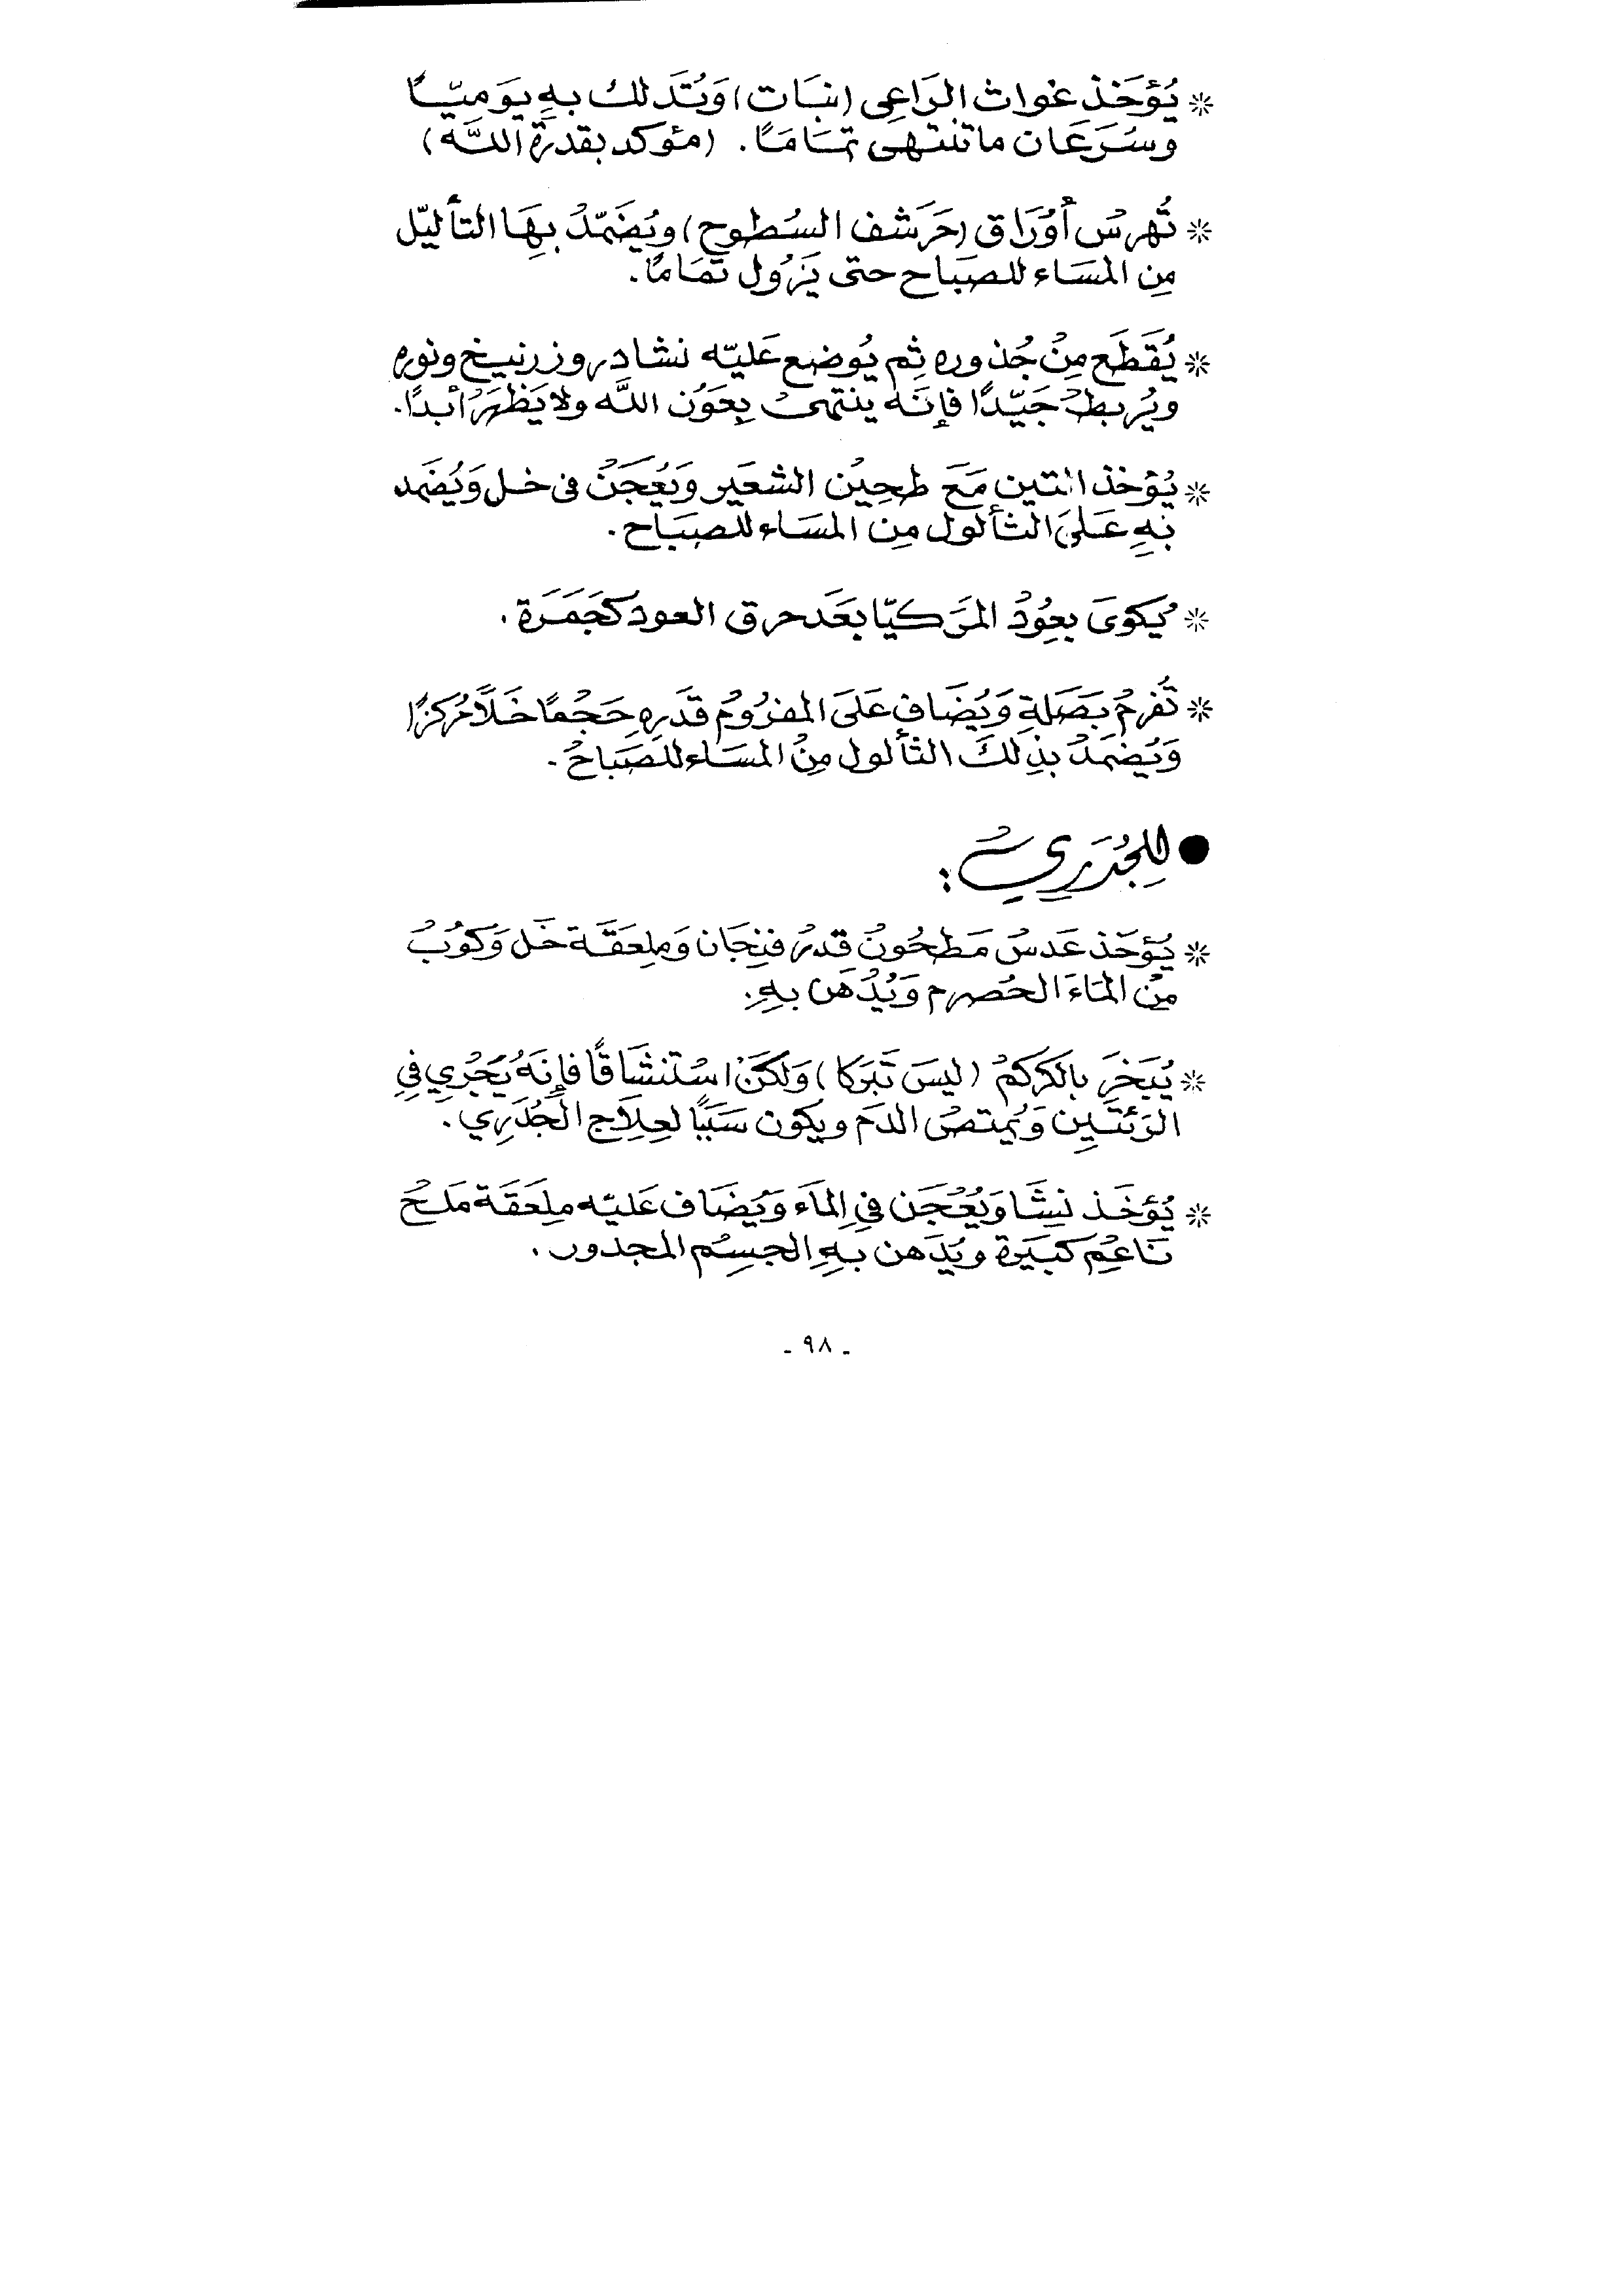 * يُؤخَذ غواث الرَاعِى (نبَات) وَتُدَلك بهِ يَوميّاً
وسَرَعَان ما تنتهى تمَامًا. (مؤكد بقدرة اللَّه)
* تُهرسْ أوْرَاق (حَرَشف السُطوح) ويُضَمّدْ بِهَا التأليّل
مِن المسَاء للصبَاح حتى يَزُول تمَامًا.
* يُقَطَع مِنْ جُذوره ثِم يُوضع عَليّه نشادر وزرنيخ ونوره
ويُربطْ جَيّدًا فإنَه ينتهىْ بِعَوْن اللَّه ولا يَظهَرْ أبدًا.
* يُؤخذ التين مَعَ طحِيْن الشعَير وَيُعجَنْ فى خل وَيُضَمد
بَهِ عَلىَ الثألول مِن المسَاء للصبَاح.
* يُكوَى بعِوُدْ المرَ كيّا بعَد حرق العود كجَمَرَة.
* تُفرمْ بَصَلةِ وَيُضَاف عَلىَ المفرُومْ قدَرهِ حَجْمًا خَلاًّ مُركزًا
وَيُضمَدْ بذلكَ الثألول مِنْ المسَاء للصَبَاحْ.
● للِجُدَرِي :
* يُؤخَذ عَدسْ مَطحُونْ قدرْ فنِجَان وَملِعَقَة خَل وَكوُبْ
مِنْ الماءَ الحُصرم وَيُدْهَن بهِ.
* يُبَخرَ بالكركمْ (ليسَ تَبَركا) وَلكَنْ اسْتنشَاقًا فإنَهُ يَجْرِي فيِ
الرَئتَينِ وَيُمتصْ الدَم ويكون سَبَبًا لعِلاَج الجُدَرِي.
* يُؤخَذ نشَا وَيُعْجَن فيِ الماَء وَيُضَاف عَليّه ملِعَقَة مَلحْ
نَاعْم كبَيَرة ويُدَهن بهِ الجسِمْ المجدور.
- ٩٨ -